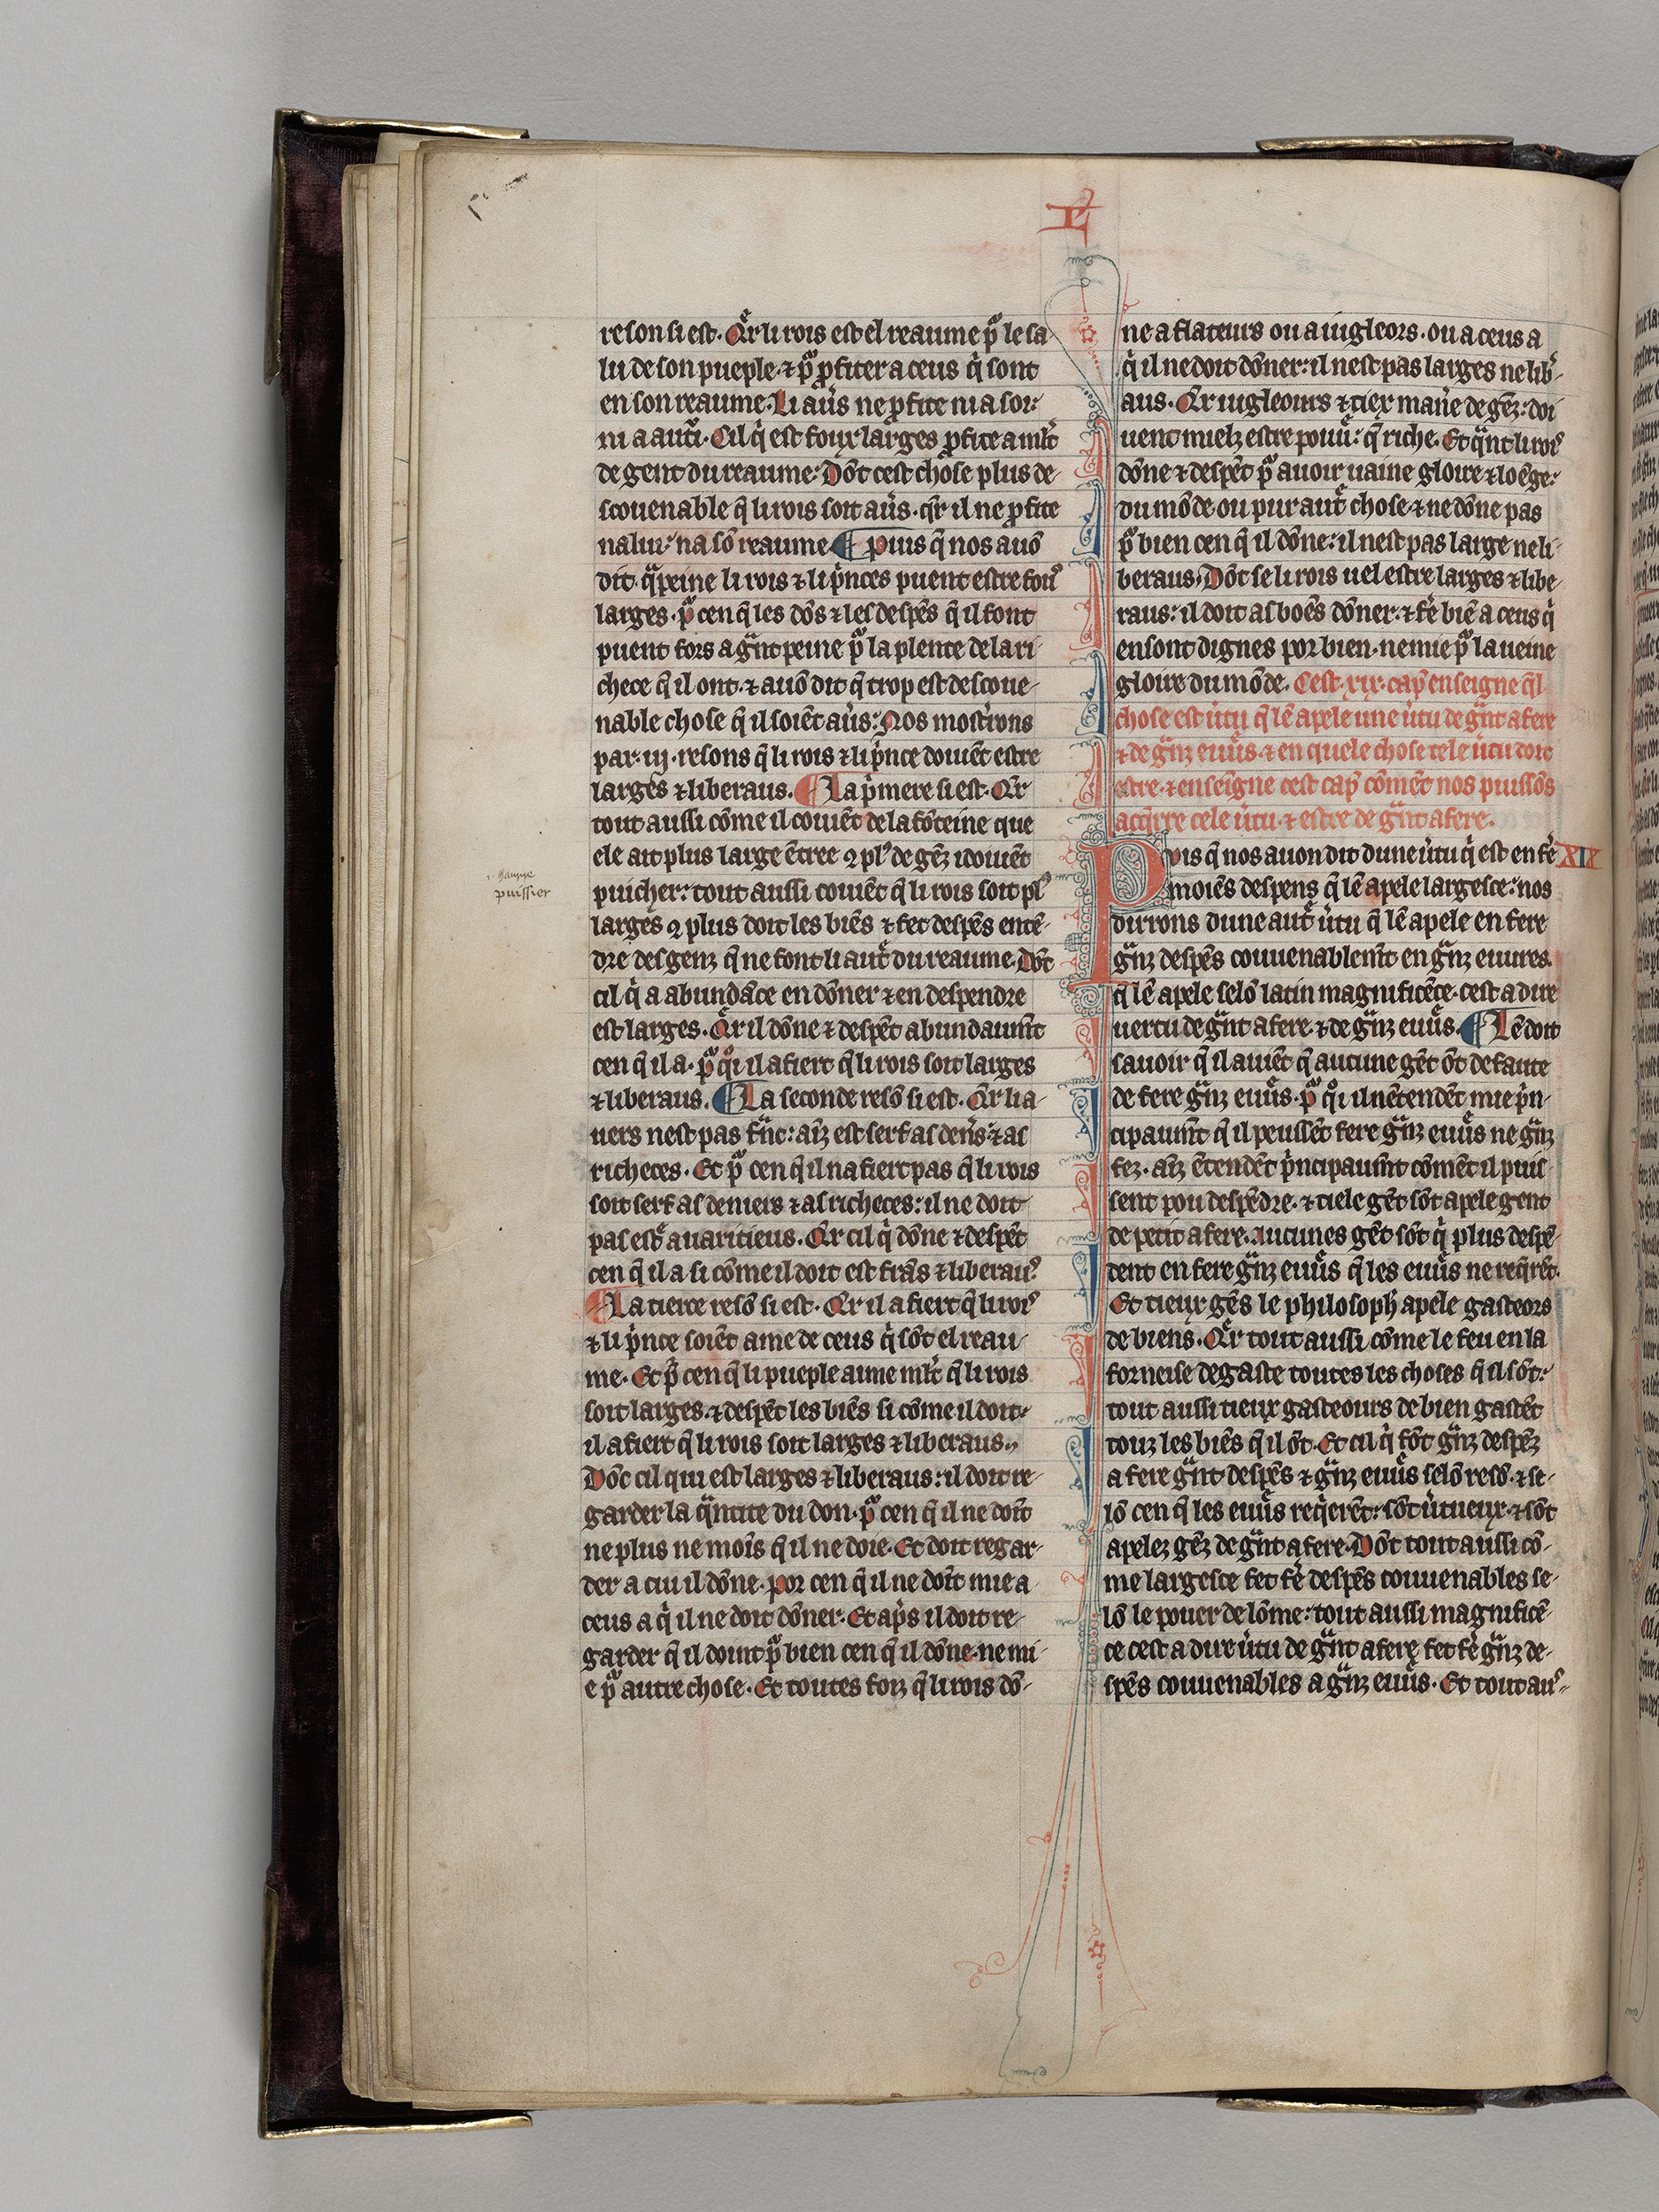 L
reson si est. Qͣr li rois est el reaume pͦ le sa
lu de son pueple. ⁊ pͦ ꝓfiter a ceus q̇ sont
en son reaume. Li aũs ne ꝓfite ni a soi:
ni a aut̃. Cil q̇ est foux larges ꝓfite a mlt̃
de gent du reaume: Dõt cest chose plus de
scouenable q̃ li rois soit aũs. qͣr il ne ꝓfite
na lui: na sõ reaume ¶ Puis q̃ nos auõ
dit. qͣ peine li rois ⁊ li pͥnces puent estre foꝰ
larges. pͦ cen q̃ les dõs ⁊ les despẽs q̃ il font
puent fors a gͣnt peine pͦ la plente de la ri
chece q̃ il ont. ⁊ auõ dit q̃ trop est descoue-
nable chose q̃ il soiẽt aũs: Nos mostͥrons
par .iij. resons q̃ li rois ⁊ li pͥnce doiuẽt estre
larges ⁊ liberaus. ¶ La pͥmere si est. Qͣr
tout aussi cõme il couiẽt de la fõteine que
ele ait plus large ẽtree ꝯ plꝰ de gẽz i doiuẽt
puicher: tout aussi couiẽt q̃ li rois soit plꝰ
larges ꝯ plus doit les biẽs ⁊ fet despẽs entẽ-
dre des genz q̃ ne font li aut̃ du reaume. Dõt
cil q̇ a abundãce en dõner ⁊ en despendre
est larges. Qͣr il dõne ⁊ despẽt abundaum̃t
cen q̃ il a. pͦ qͦi il afiert q̃ li rois soit larges
⁊ liberaus. ¶ La seconde resõ si est. Qͣr li a-
uers nest pas frͣnc: aĩz est serf as deñs ⁊ as
richeces. Et pͦ cen q̃ il nafiert pas q̃ li rois
soit serf as deniers ⁊ as richeces: il ne doit
pas estͤ auaritieus. Qͣr cil q̇ dõne ⁊ despẽt
cen q̃ il a si cõme il doit est frãs ⁊ liberauꝰ
¶ La tierce resõ si est. Qͣr il afiert q̃ li roiꝰ
⁊ li pͥnce soiẽt ame de ceus q̇ sõt el reau-
me. Et pͦ cen q̃ li pueple aime mlt̃ q̃ li rois
soit larges. ⁊ despẽt les biẽs si cõme il doit:
il afiert q̃ li rois soit larges ⁊ liberaus.
Dõc cil qui est larges ⁊ liberaus: il doit re-
garder la qͣntite du don. pͦ cen q̃ il ne doĩt
ne plus ne moĩs q̃ il ne doie. Et doit regar-
der a cui il dõne. por cen q̃ il ne doĩt mie a
ceus a q̇ il ne doit dõner. Et ap̃s il doit re-
garder q̃ il doint pͦ bien cen q̃ il dõne. ne mi-
e pͦ autre chose. Et toutes foiz q̃ li rois dõ-
puissier
ne a flateurs ou a iugleors. ou a ceus a
q̇ il ne doit dõner: il nest pas larges ne lib̃-
aus. Qͣr iugleours ⁊ tiex mañe de gẽz: doi
uent mielz estre poũe: q̃ riche. Et qͣnt li roiꝰ
dõne ⁊ despẽt pͦ auoir uaine gloire ⁊ loẽge:
du mõde. ou pur aut̃ chose. ⁊ ne dõne pas
pͦ bien cen q̃ il dõne: il nest pas large ne li-
beraus. Dõt se li rois uel estre larges ⁊ libe-
raus: il doit as boẽs dõner. ⁊ fẽ biẽ a ceus q̇
en sont dignes por bien. ne mie pͦ la ueine
gloire du mõde. Cest .xix. cap̃ enseigne q̃l
chose est ũtu q̃ lẽ apele une ũtu de gͣnt afere
⁊ de gͣnz euuͤs. ⁊ en quele chose tele ũtu doit
estre. ⁊ enseigne cest cap̃ cõmẽt nos puissõs
acq̃rre cele ũtu ⁊ estre de gͣnt afere.
Puis q̃ nos auon dit dune ũtu q̇ est en fẽ XIX
moiẽs despens q̃ lẽ apele largesce: nos
dirrons dune aut̃ ũtu q̃ lẽ apele en fere
gͣnz despẽs couuenablem̃t en gͣnz euures.
q̃ lẽ apele selõ latin magnificẽce. cest a dire
uertu de gͣnt afere. ⁊ de gͣnz euuͤs. ¶ Lẽ doit
sauoir q̃ il auiẽt q̃ aucune gẽt õt defaute
de fere gͣnz euuͤs. pͦ qͦi il nẽtendẽt mie pͥn-
cipaum̃t q̃ il peussẽt fere gͣnz euuͤs ne gͣnz
fez. aĩz ẽtendẽt pͥncipaum̃t cõmẽt il puis-
sent pou despẽdre. ⁊ tiele gẽt sõt apele gent
de petit afere. Aucunes gẽt sõt q̇ plus despẽ-
dent en fere gͣnz euuͤs q̃ les euuͤs ne req̃rẽt.
Et tieux gẽs le philosoph̃ apele gasteors
de biens. Qͣr tout aussi cõme le feu en la
forneise degaste toutes les choses q̃ il sõt:
tout aussi tieux gasteours de bien gastẽt
touz les biẽs q̃ il õt. Et cil q̇ fõt gͣnz despẽz
a fere gͣnt despẽs ⁊ gͣnz euuͤs selõ resõ. ⁊ se-
lõ cen q̃ les euuͤs req̃erẽt: sõt ũtueux. ⁊ sõt
apelez gẽz de gͣnt afere. Dõt tout aussi cõ-
me largesce fet fẽ despẽs couuenables se-
lõ le pouer de lõme: tout aussi magnificẽ-
ce cest a dire ũtu de gͣnt afere fet fẽ gͣnz de-
spẽs couuenables a gͣnz euuͤs. Et tout auꝰ-